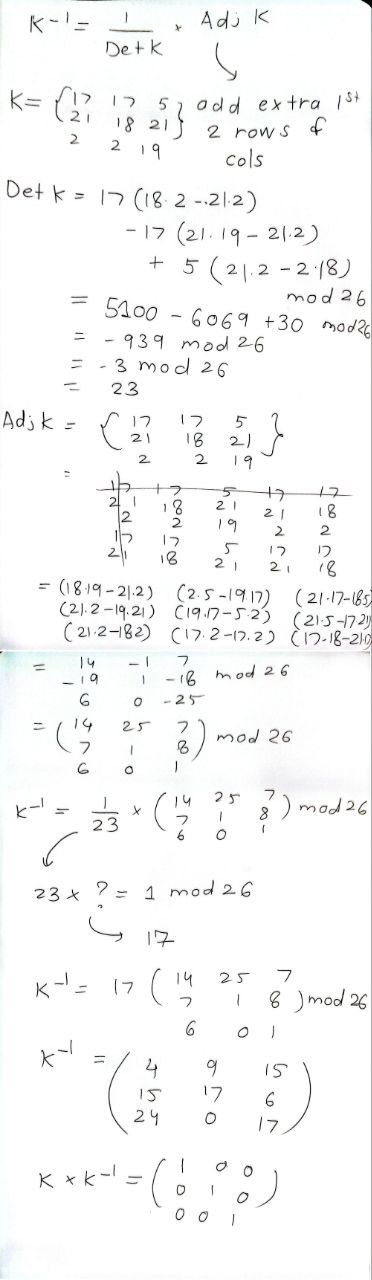 K⁻¹ = 1/Det K × Adj K
K = {17 17 5 add extra 1st
21 18 21} 2 rows &
2 2 19 cols
Det K = 17 (18·2 - 21·2)
- 17 (21·19 - 21·2)
+ 5 (21·2 - 2·18)
mod 26
= 5100 - 6069 + 30 mod 26
= -939 mod 26
= -3 mod 26
= 23
Adj K = {17 17 5
21 18 21}
2 2 19
=
17 17 5 17 17
21 18 21 21 18
2 2 19 2 2
17 17 5 17 17
21 18 21 21 18
= (18·19-21·2) (2·5-19·17) (21·17-185)
(21·2-19·21) (19·17-5·2) (21·5-17·21)
(21·2-182) (17·2-17·2) (17·18-21·17)
= 14 -1 7
-19 1 -18 mod 26
6 0 -25
= (14 25 7
7 1 8) mod 26
6 0 1
K⁻¹ = 1/23 × (14 25 7
7 1 8) mod 26
6 0 1
23 × ? = 1 mod 26
17
K⁻¹ = 17 (14 25 7
7 1 8) mod 26
6 0 1
K⁻¹ = (4 9 15
15 17 6
24 0 17)
K × K⁻¹ = (1 0 0
0 1 0)
0 0 1